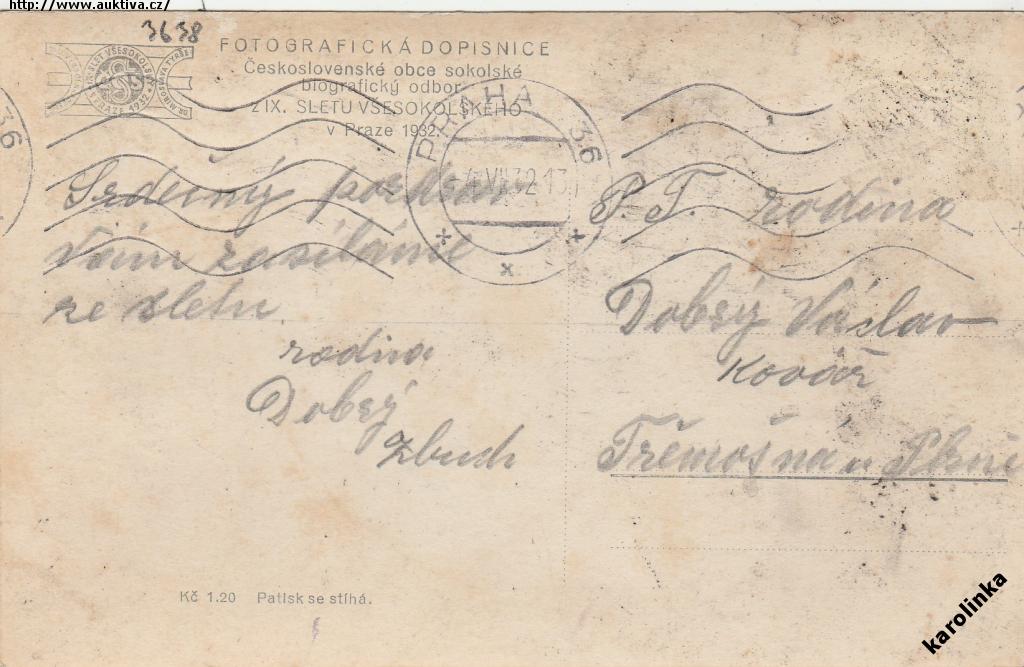 http://www.auktiva.cz/
3638
FOTOGRAFICKÁ DOPISNICE
Československé obce sokolské
biografický odbor
z IX. SLETU VŠESOKOLSKÉHO
v Praze 1932.
PRAHA 36
VII 32 13
Srdečný pozdrav
Vám zasíláme
ze sletu
rodina
Dobrý
Zbuch
P. T. rodina
Dobrý Václav
Kovář
Třemošná u Plzně
Kč 1.20 Patisk se stíhá.
karolinka